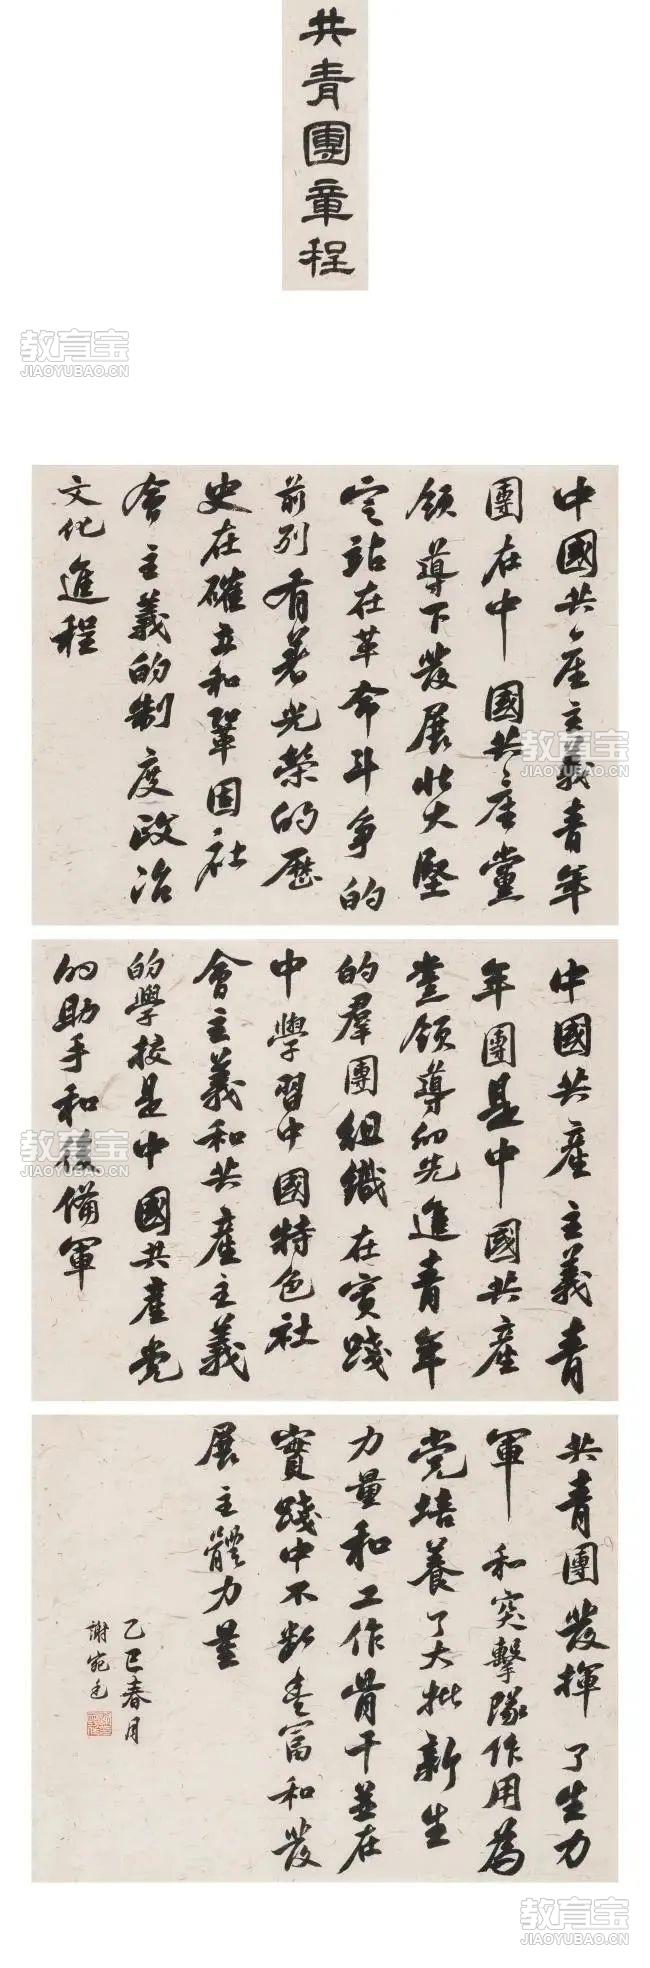 共青團章程
教育宝
JIAOYUBAO.CN
中國共產主義青年
團在中國共產黨
領導下發展壯大堅
定站在革命斗爭的
前列有著光榮的歷
史在確立和鞏固社
會主義的制度政治
文化進程
教育宝
JIAOYUBAO.CN
中國共產主義青
年團是中國共產
党領導的先進青年
的羣團組織在實踐
中學習中國特色社
會主義和共產主義
的學校是中國共產党
的助手和後備軍
教育宝
JIAOYUBAO.CN
共青團發揮了生力
軍和突擊隊作用為
党培養了大批新生
力量和工作骨干並在
實踐中不断豊富和發
展主體力量
乙巳春月
謝宛
教育宝
JIAOYUBAO.CN